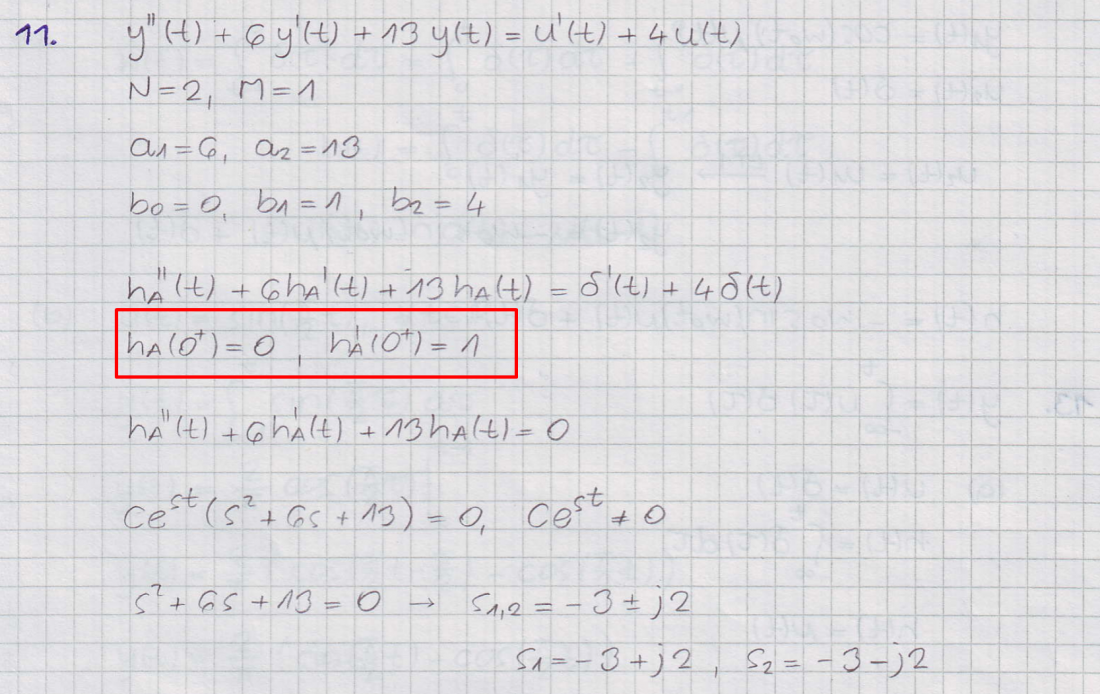 11. y''(t) + 6y'(t) + 13y(t) = u'(t) + 4u(t)
N=2, M=1
a1=6, a2=13
b0=0, b1=1, b2=4
hA''(t) + 6hA'(t) + 13hA(t) = δ'(t) + 4δ(t)
hA(0⁺)=0, hA'(0⁺)=1
hA''(t) + 6hA'(t) + 13hA(t) = 0
Ce^st(s²+6s+13)=0, Ce^st≠0
s²+6s+13=0 → s1,2=-3±j2
s1=-3+j2, s2=-3-j2